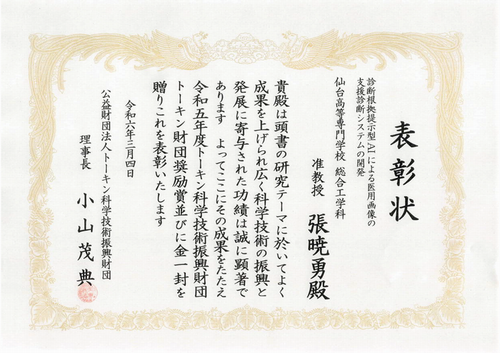 表彰状
診断根拠提示型AIによる医用画像の
支援診断システムの開発
仙台高等専門学校 総合工学科
准教授 張暁勇殿
貴殿は頭書の研究テーマに於いてよく
成果を上げられ広く科学技術の振興と
発展に寄与された功績は誠に顕著で
あります よってここにその成果をたたえ
令和五年度トーキン科学技術振興財団
トーキン財団奨励賞並びに金一封を
贈りこれを表彰いたします
令和六年三月四日
公益財団法人トーキン科学技術振興財団
理事長 小山茂典